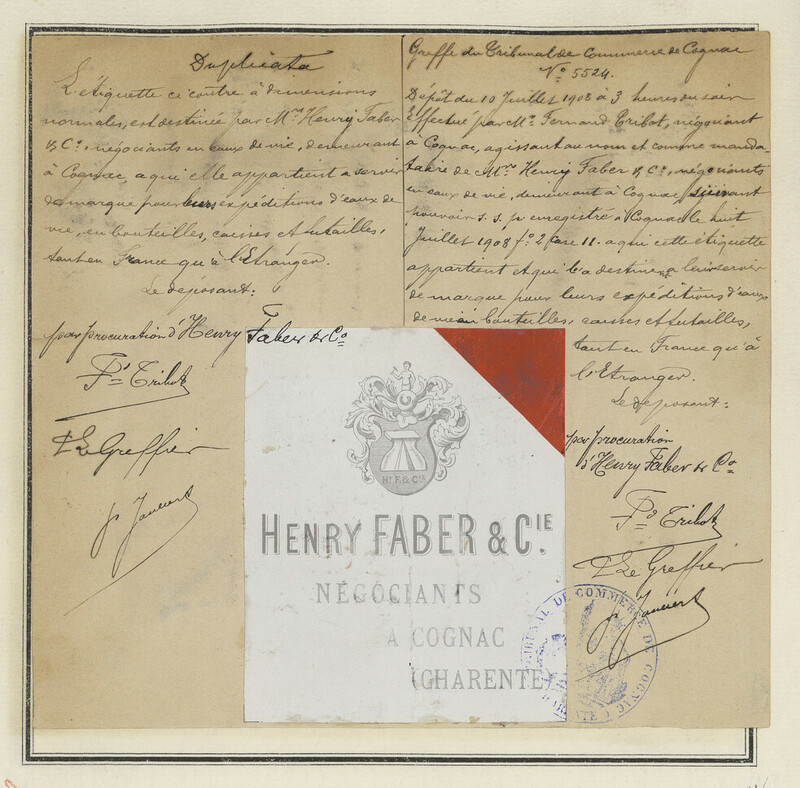 Duplicata
L'étiquette ci contre à dimensions
normales, est destinée par Mrs Henry Faber
& Co, négociants en eaux de vie, demeurant
à Cognac, a qui elle appartient a servir
de marque pour leurs expéditions d'eaux de
vie, en bouteilles, caisses et futailles,
tant en France qu'à l'Etranger.
Le déposant:
par procuration d'Henry Faber & Co
Fd Tribot
Le Greffier
Greffe du Tribunal de Commerce de Cognac
No 5524.
Dépôt du 10 Juillet 1908 à 3 heures du soir
Effectué par Mr Fernand Tribot, négociant
à Cognac, agissant au nom et comme manda
taire de Mrs Henry Faber & Co, négociants
en eaux de vie, demeurant à Cognac, suivant
pouvoir s. s. p. enregistré à Cognac le huit
Juillet 1908 fo 2 case 11. a qui cette étiquette
appartient et qui l'a destinée a leur servir
de marque pour leurs expéditions d'eaux
de vie en bouteilles, caisses et futailles,
tant en France qu'à
l'Etranger.
Le déposant:
par procuration
d'Henry Faber & Co
Fd Tribot
Le Greffier
HY F. & CIE
HENRY FABER & CIE.
NÉGOCIANTS
A COGNAC
(CHARENTE)
TRIBUNAL DE COMMERCE DE COGNAC